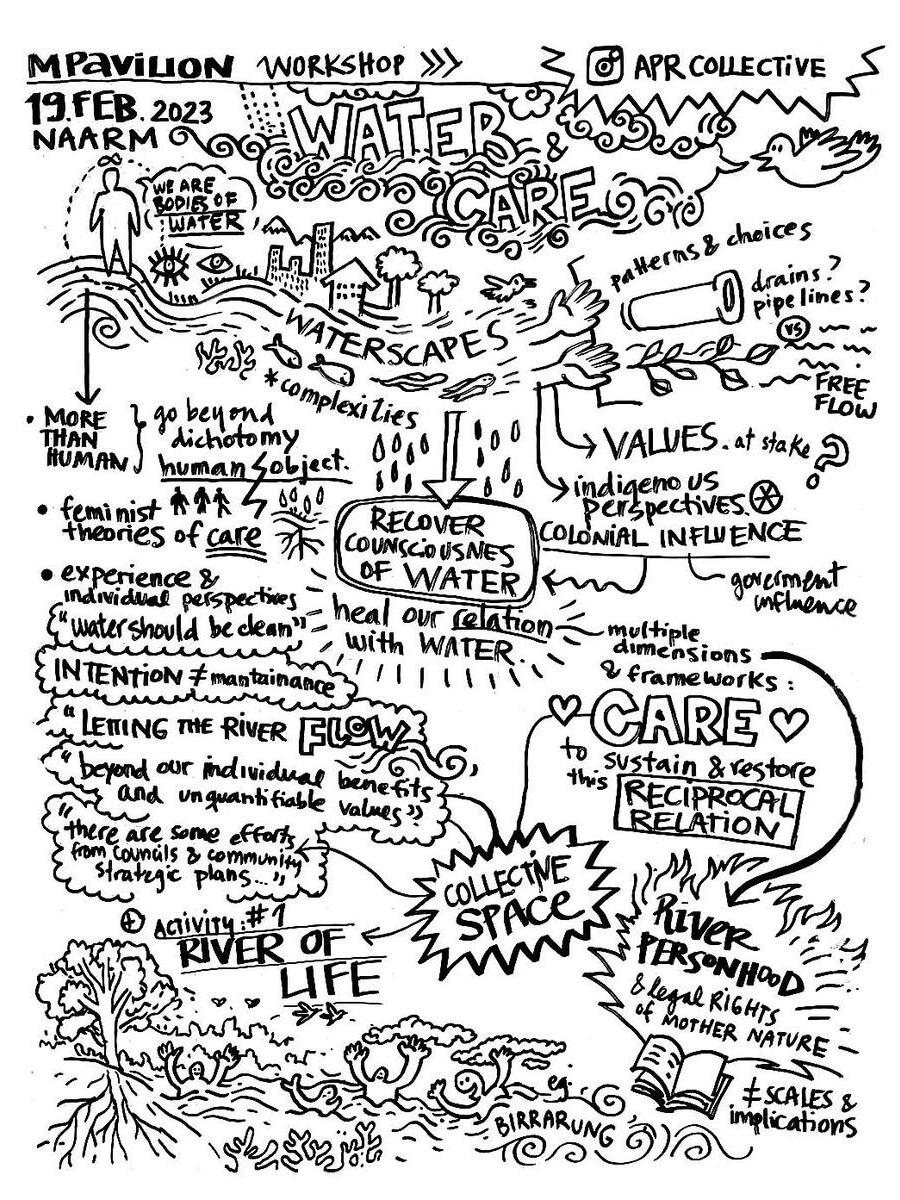 MPavilion WORKSHOP >>>
APR COLLECTIVE
19.FEB.2023
NAARM
WATER
&
CARE
WE ARE
BODIES OF
WATER
patterns & choices
drains?
pipelines?
VS
FREE
FLOW
WATERSCAPES
*complexities
• MORE
THAN
HUMAN
go beyond
dichotomy
human object.
• feminist
theories of care
• experience &
individual perspectives
"water should be clean"
INTENTION ≠ mantainance
"LETTING THE RIVER FLOW
"beyond our individual benefits
and unquantifiable values"
"there are some efforts
from councils & community
strategic plans..."
VALUES. at stake?
indigenous
perspectives.
COLONIAL INFLUENCE
goverment
influence
RECOVER
COUNSCIOUSNES
OF WATER
heal our relation
with WATER.
multiple
dimensions
& frameworks:
CARE
to sustain & restore
this RECIPROCAL
RELATION
COLLECTIVE
SPACE
+ ACTIVITY:#1
RIVER OF
LIFE
RIVER
PERSONHOOD
& legal RIGHTS
of MOTHER NATURE
≠ SCALES &
implications
eg.
BIRRARUNG